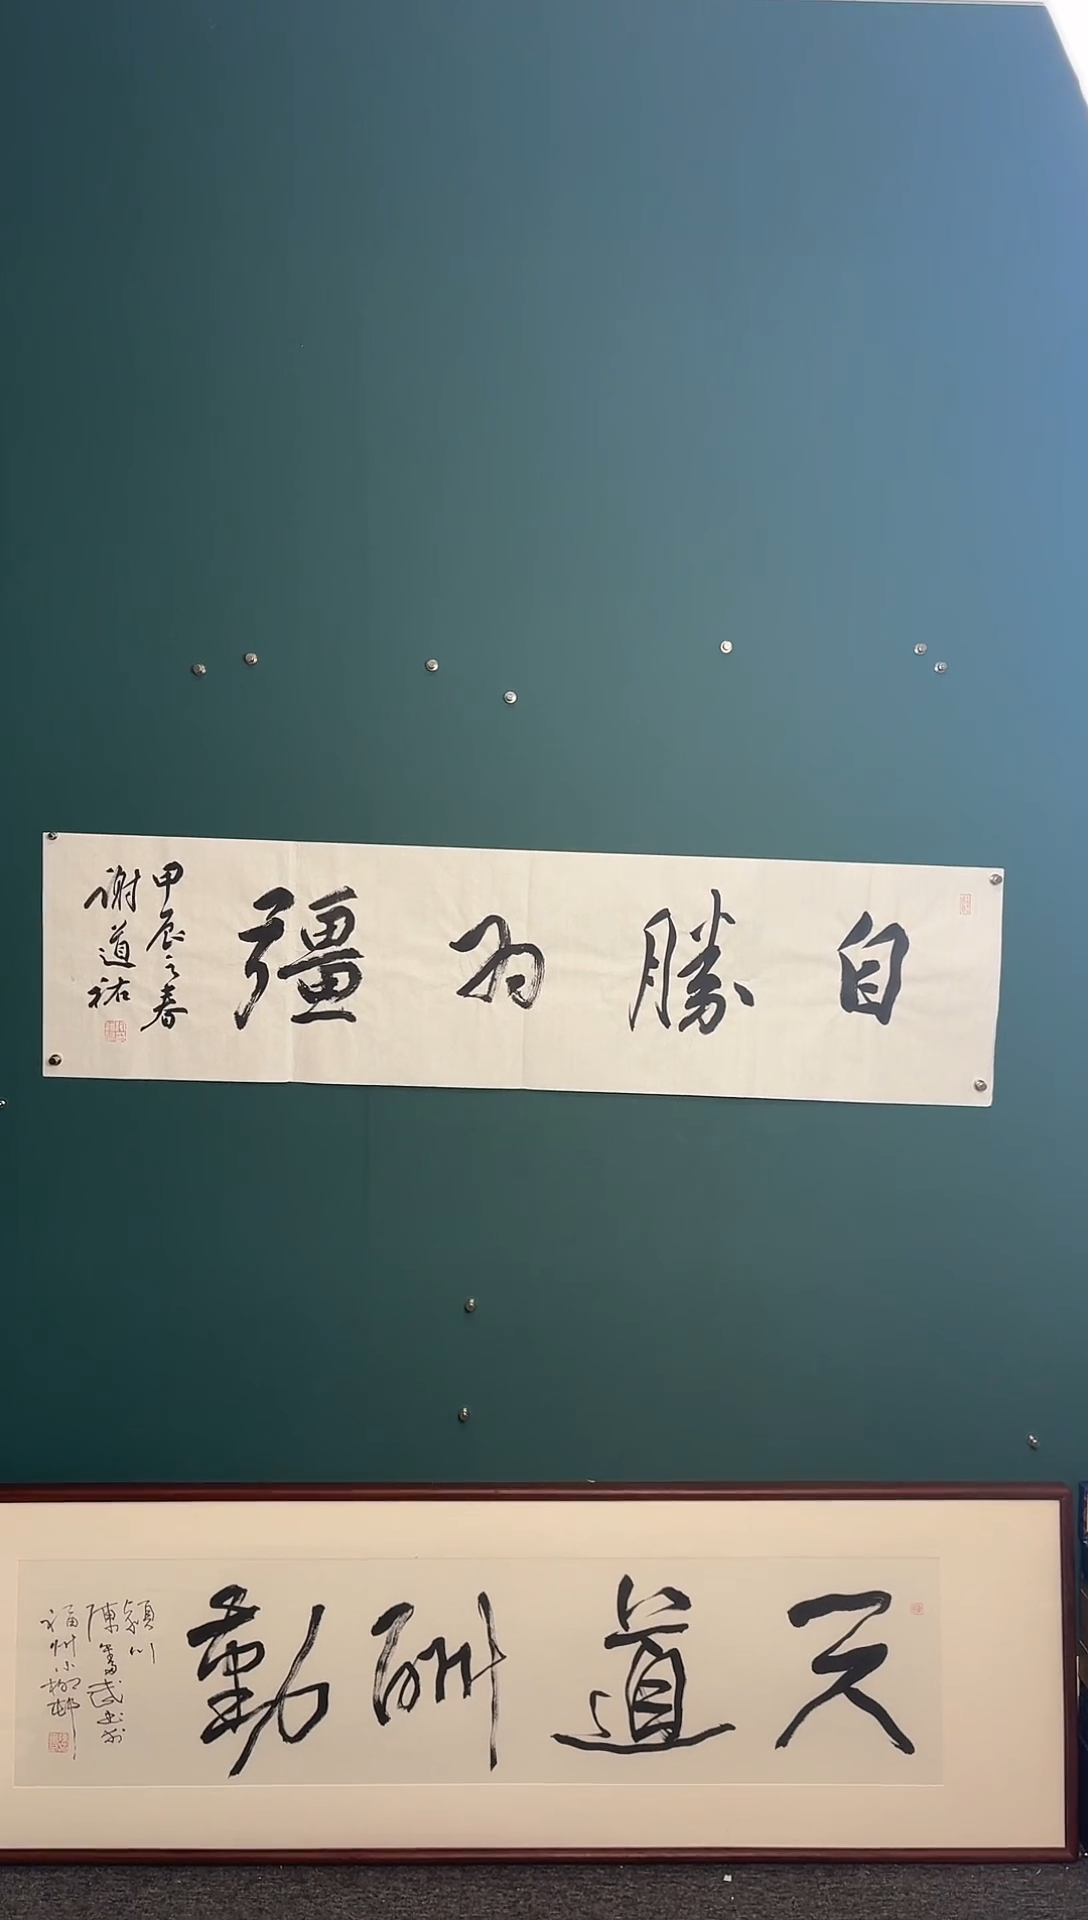 自勝為彊
甲辰之春
謝道祐
天道酬勤
潁川
陳奮武書於
福州小柳邨